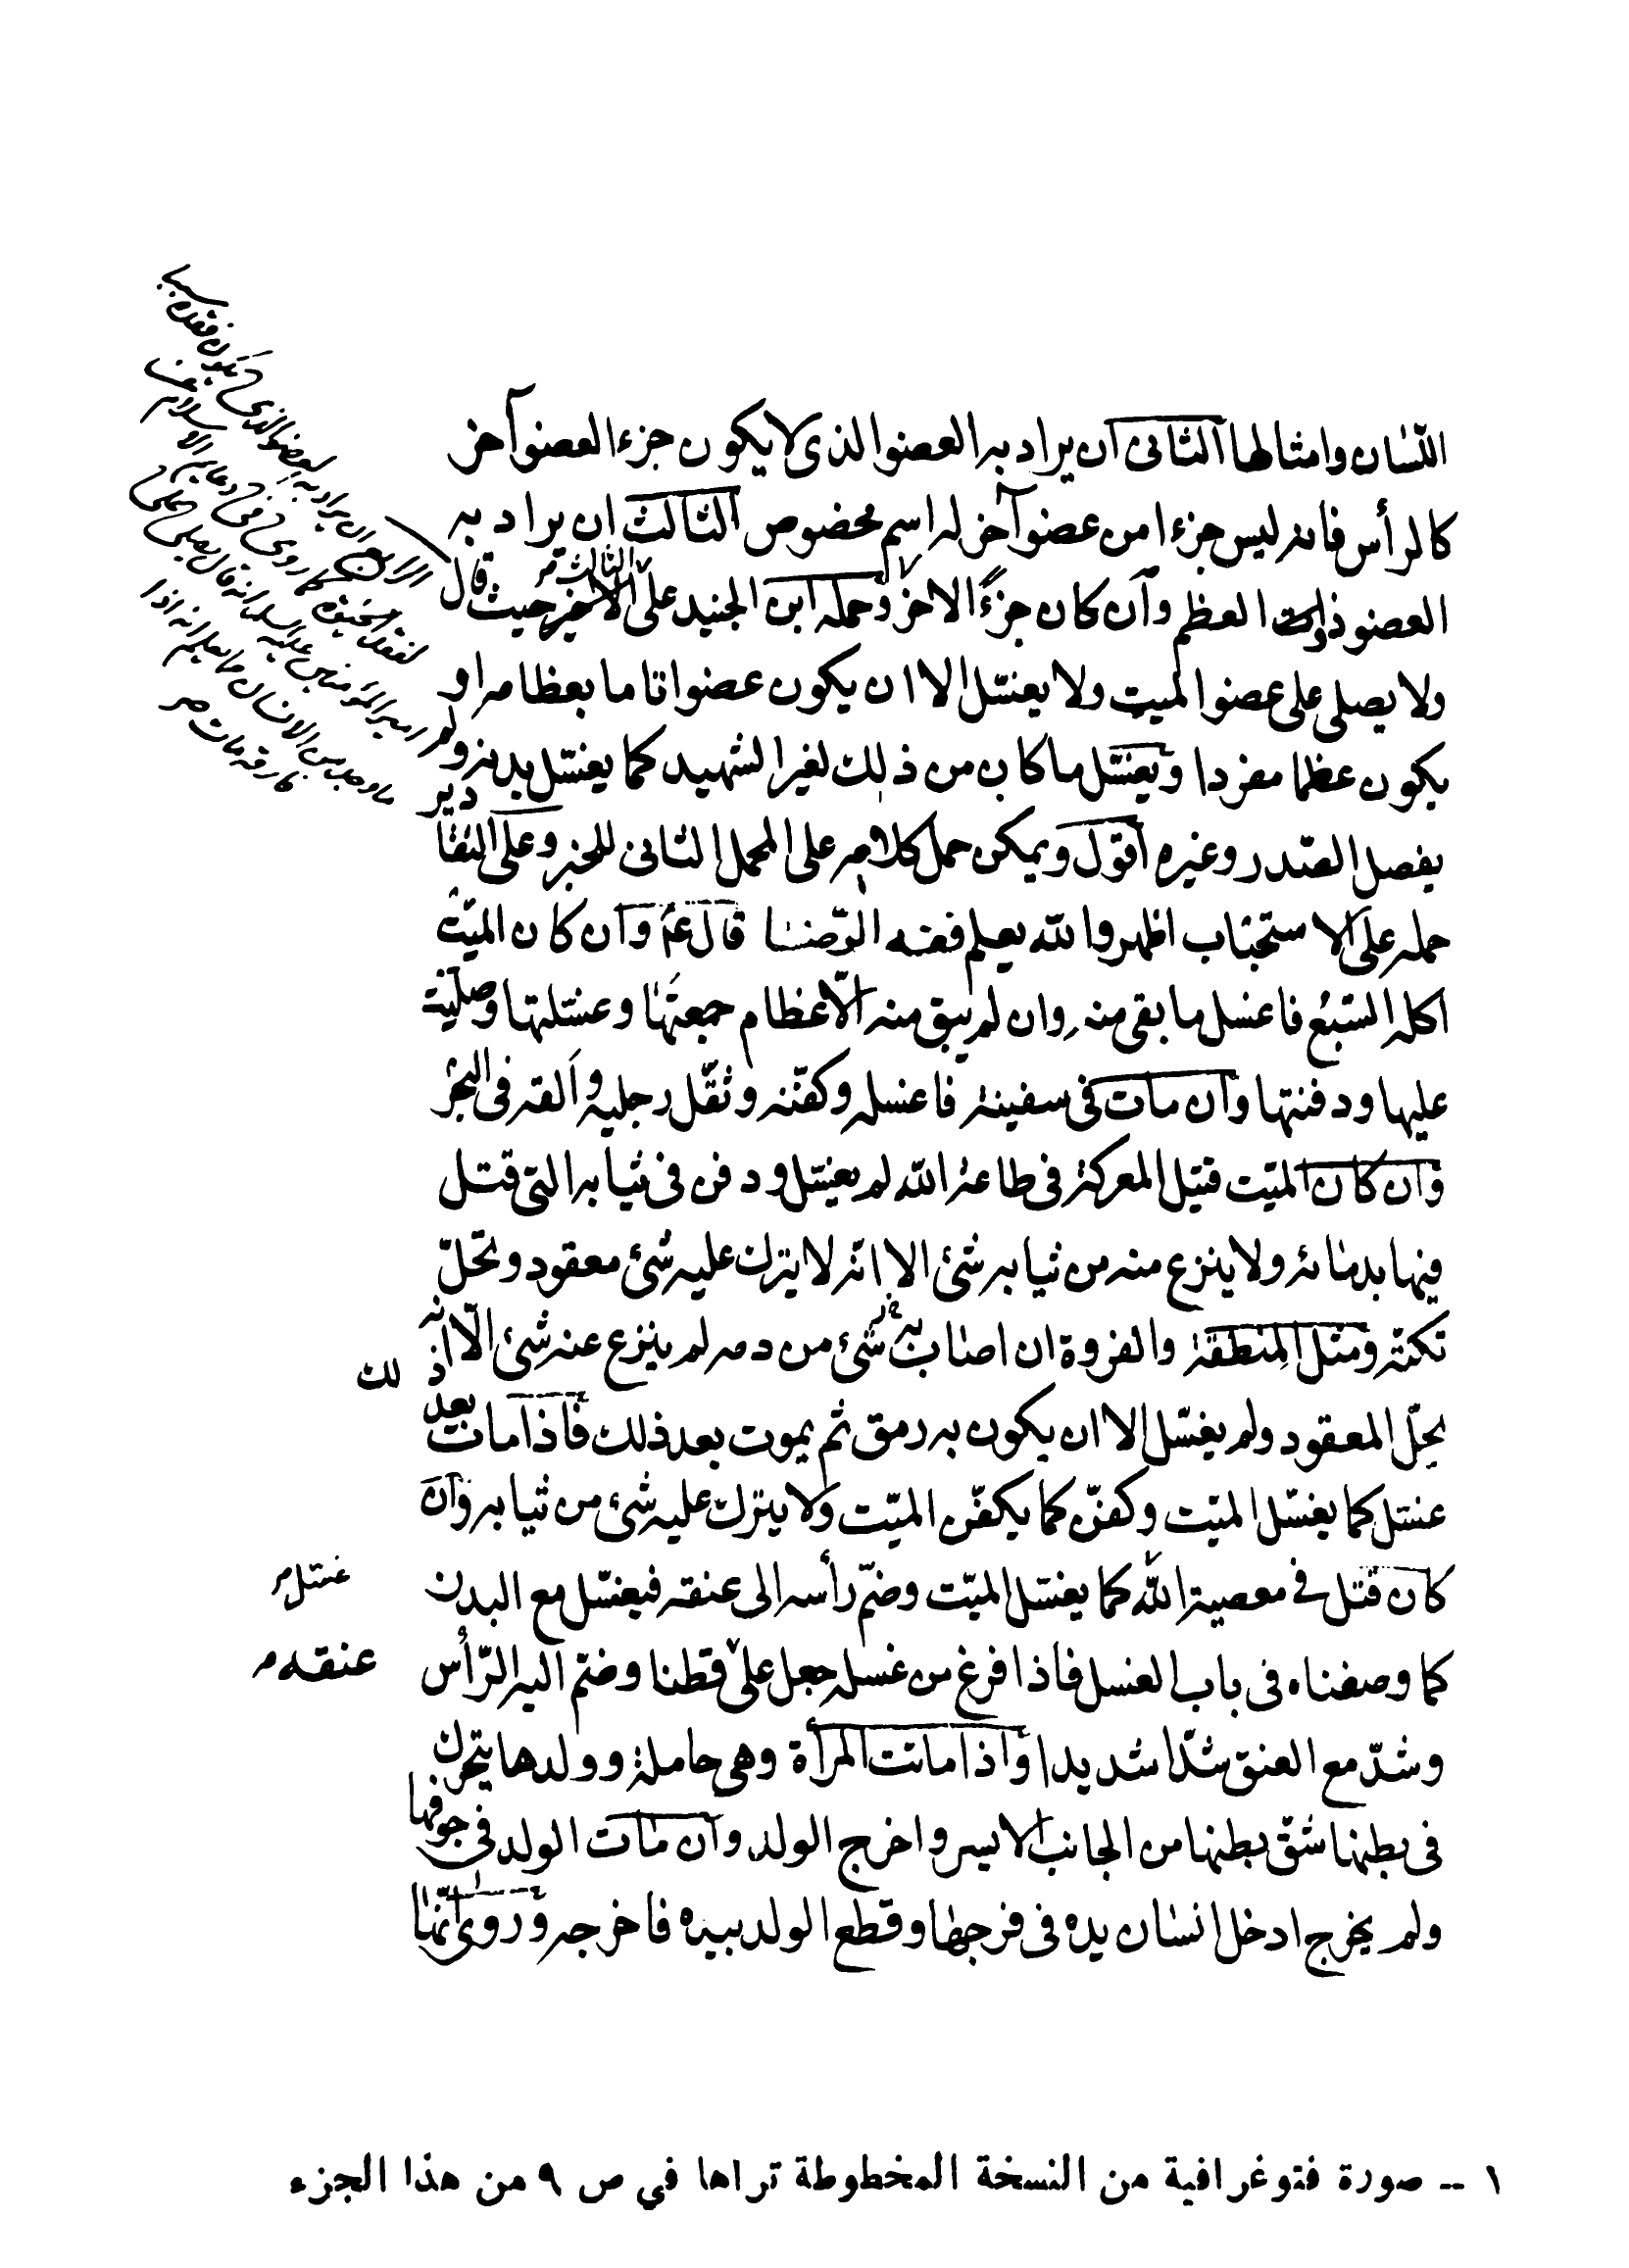 اللّسان وامثالها الثانى ان يراد به العضو الذى لا يكون جزء العضو آخر
كالرأس فانه ليس جزءا من عضو آخر له اسم مخصوص الثالث ان يراد به
العضو ذات العظم وان كان جزءً الاخر وحمله ابن الجنيد على الثالث حيث قال
ولا يصلى على عضو الميت ولا يغسّل الا ان يكون عضوا تاما بعظامه او
يكون عظما مفردا ويغسّل ما كان من ذلك لغير الشهيد كما يغسّل بدنه ولم
يفصل الصّدر وغيره اقول ويمكن حمل كلامه على المحمل الثانى للخبر وعلى
حمله على الاستحباب اظهر والله يعلم فقه الرّضا قال ع وان كان الميّت
اكله السّبع فاغسل ما بقى منه وان لم يبق منه الّا عظام جمعتها وغسّلتها وصلّيت
عليها ودفنتها وان مات فى سفينة فاغسله وكفّنه وثقّل رجليه والقه فى البحر
وان كان الميّت قتيل المعركة فى طاعة الله لم يغسّل ودفن فى ثيابه التى قتل
فيها بدمائه ولا ينزع منه من ثيابه شئ الا انّه لا يترك عليه شئ معقود وتحلّ
تكّته ومثل المنطقة والفروة ان اصاب شئ من دمه لم ينزع عنه شئ الّا انه
يحلّ المعقود ولم يغسّل الا ان يكون به رمق ثم يموت بعد ذلك فاذا مات بعد ذلك
غسّل كما يغسّل الميّت وكفّن كما يكفّن الميّت ولا يترك عليه شئ من ثيابه وان
كان قتل في معصية الله كما يغسّل الميّت وضمّ رأسه الى عنقه فيغسّل مع البدن
غسّل
كما وصفناه فى باب الغسل فاذا فرغ من غسله جعل على قطنا وضمّ اليه الرّأس
عنقه
وشدّ مع العنق شدّا شديدا واذا ماتت المرأة وهى حاملة وولدها يتحرك
فى بطنها شقّ بطنها من الجانب الايسر واخرج الولد وان مات الولد فى جوفها
ولم يخرج ادخل انسان يده فى فرجها وقطع الولد بيده فاخرجه وروى انّها
١ -- صورة فتوغرافية من النسخة المخطوطة تراها في ص ٩ من هذا الجزء